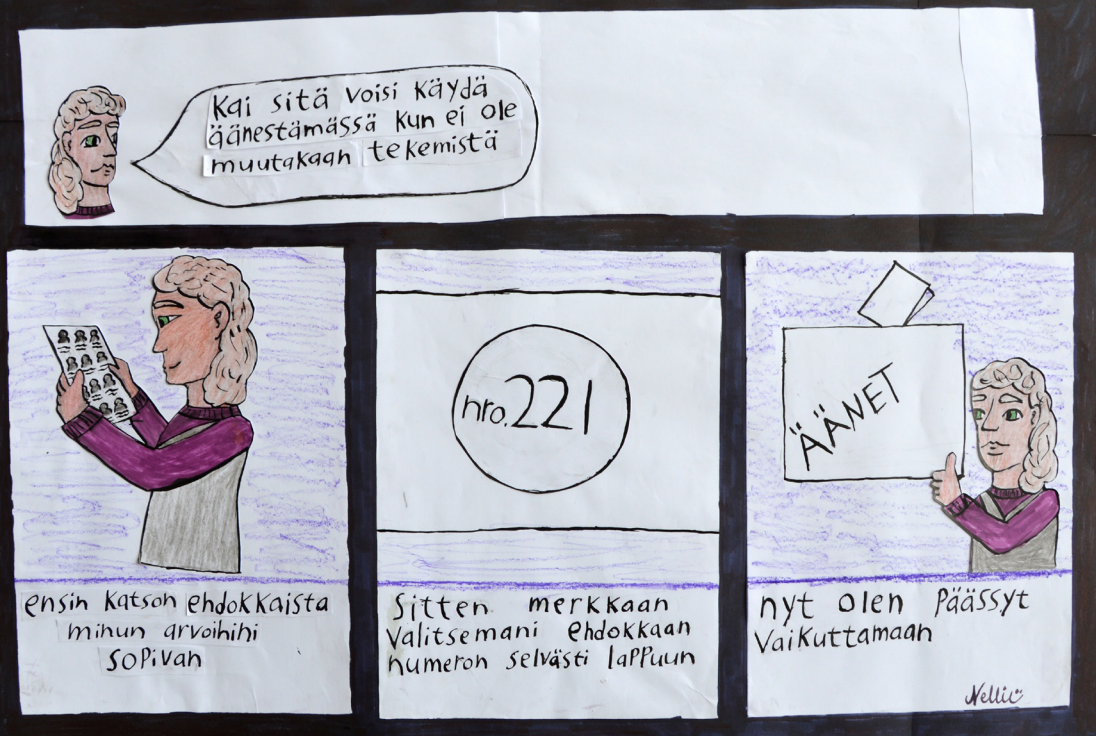 Kai sitä voisi käydä
äänestämässä kun ei ole
muutakaan tekemistä
ensin katson ehdokkaista
minun arvoihini
sopivan
nro.221
Sitten merkkaan
valitsemani ehdokkaan
numeron selvästi lappuun
ÄÄNET
nyt olen päässyt
vaikuttamaan
Nellie